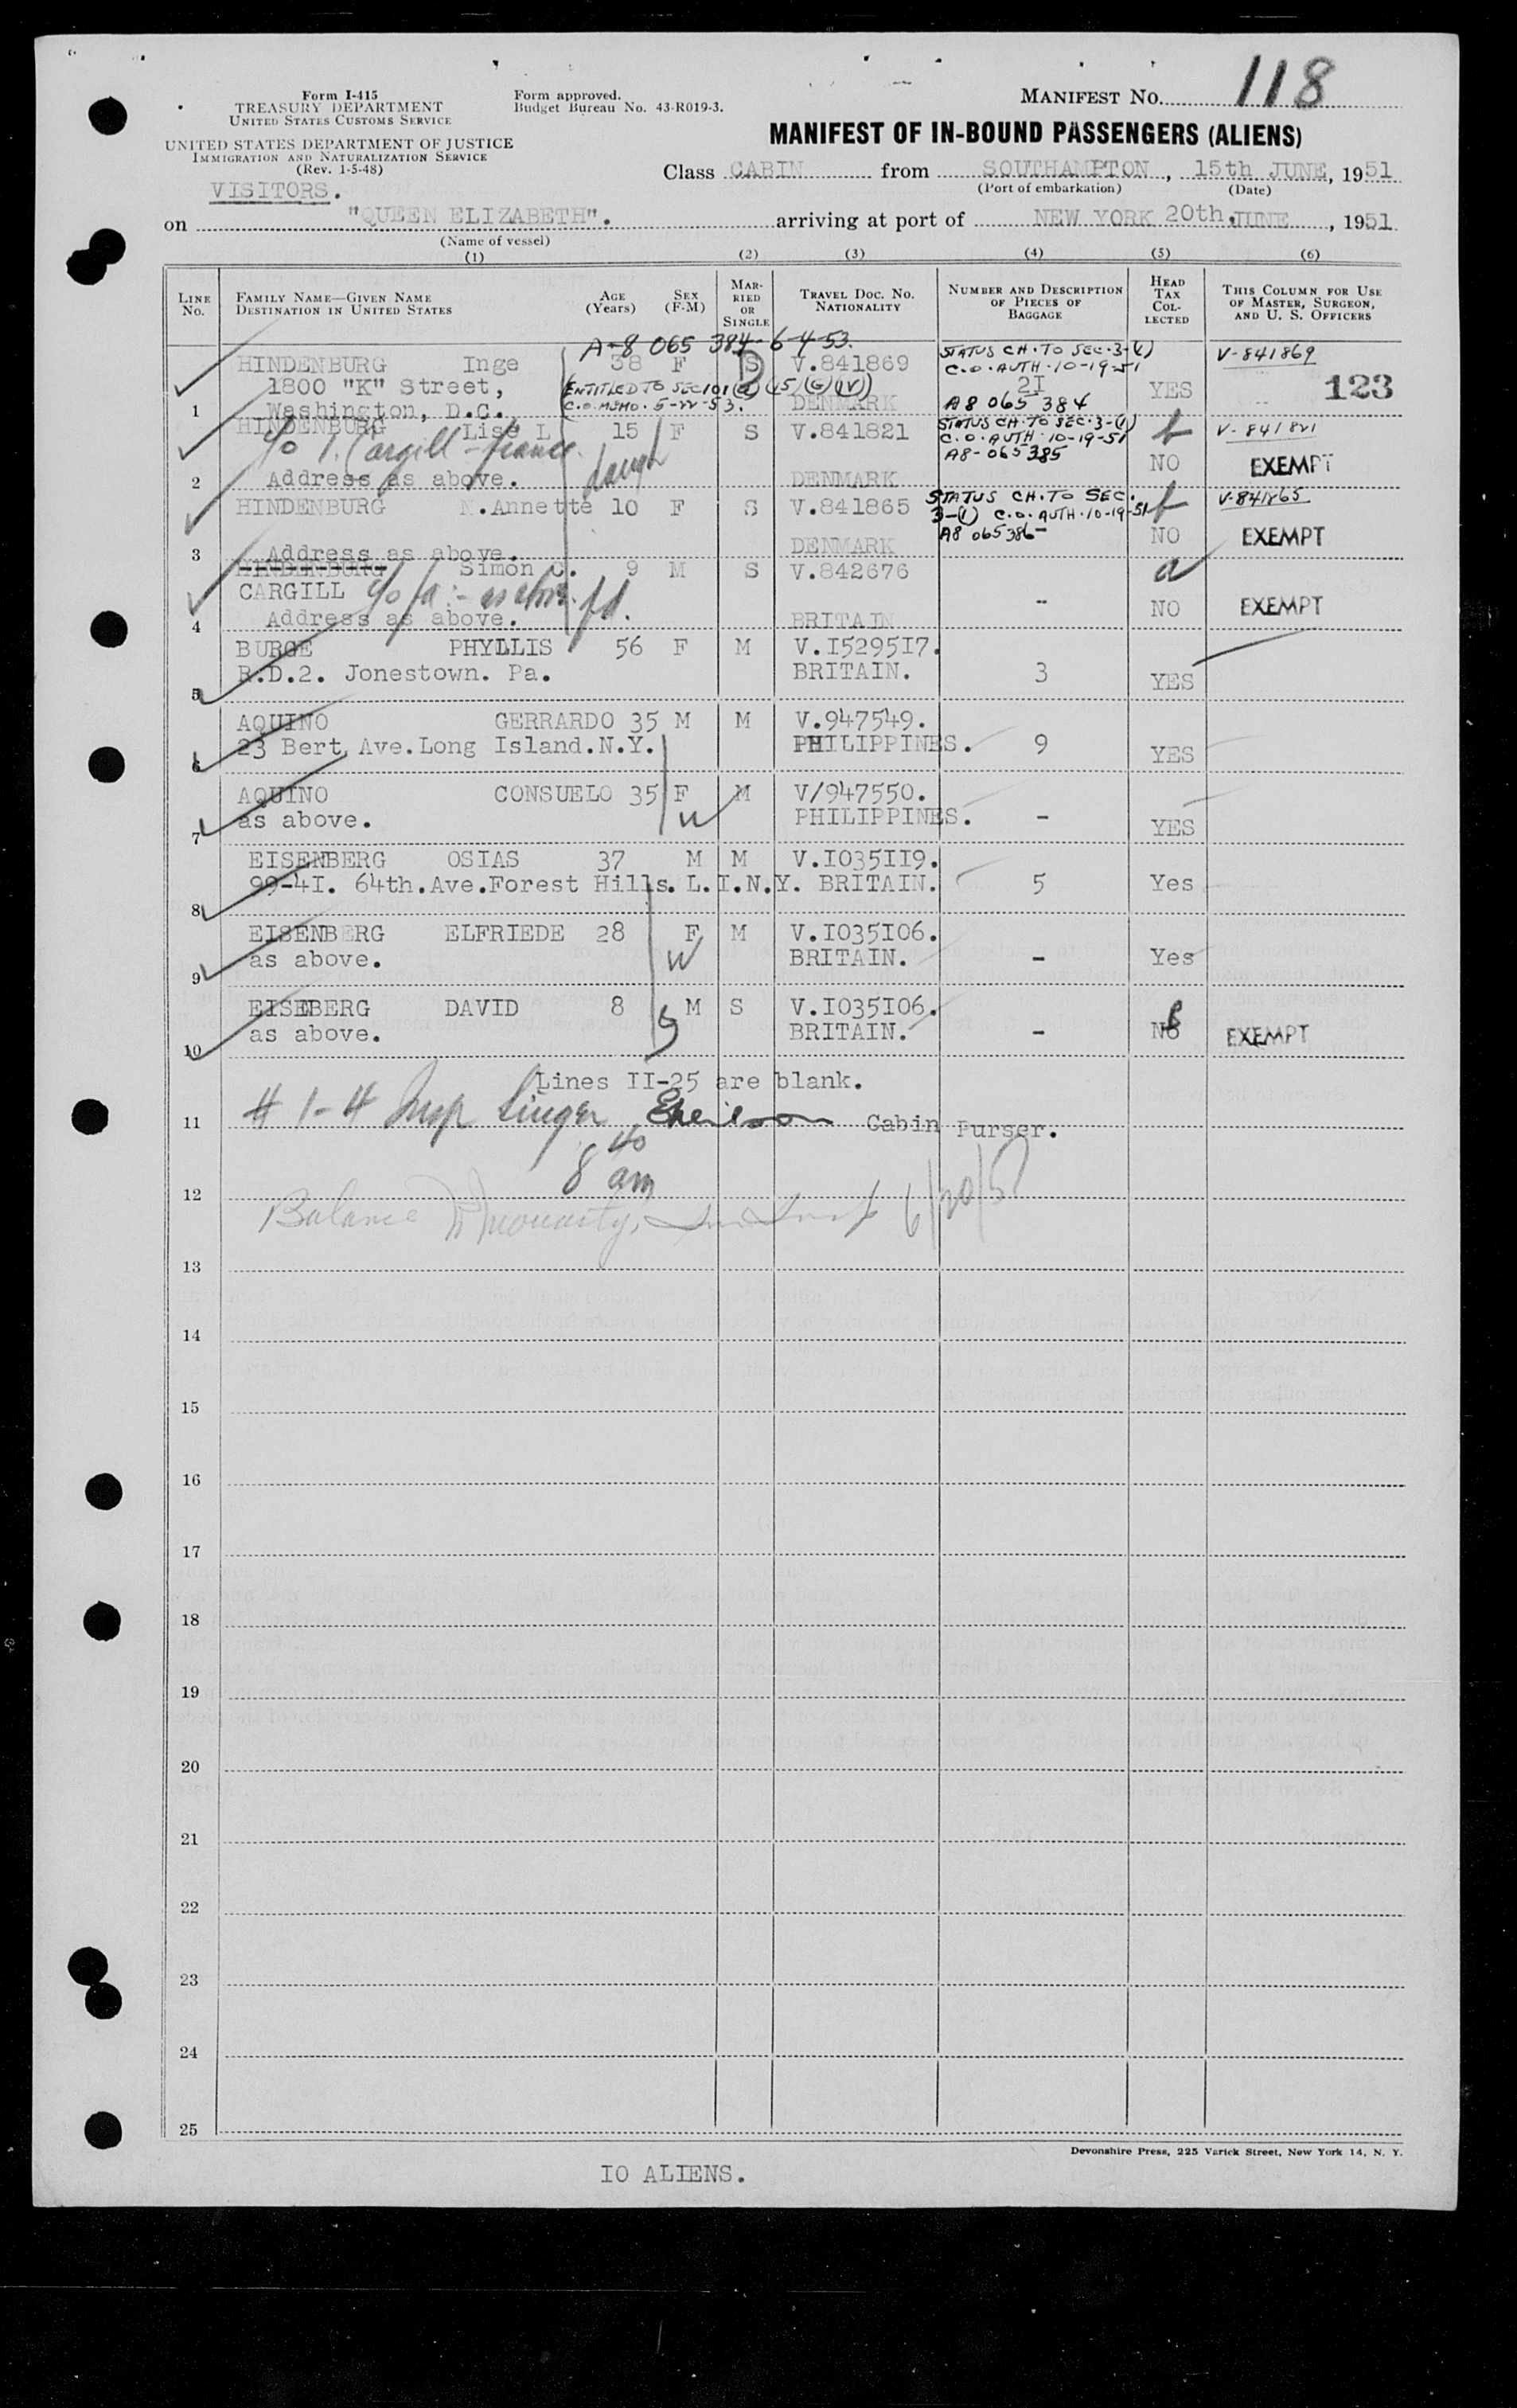 Form I-415
TREASURY DEPARTMENT
UNITED STATES CUSTOMS SERVICE
UNITED STATES DEPARTMENT OF JUSTICE
IMMIGRATION AND NATURALIZATION SERVICE
(Rev. 1-5-48)
VISITORS.
Form approved.
Budget Bureau No. 43-R019-3.
MANIFEST No. 118
MANIFEST OF IN-BOUND PASSENGERS (ALIENS)
Class CABIN from SOUTHAMPTON, 15th JUNE, 1951
(Port of embarkation) (Date)
on "QUEEN ELIZABETH". arriving at port of NEW YORK 20th JUNE, 1951
(Name of vessel)
(1) (2) (3) (4) (5) (6)
LINE No. FAMILY NAME—GIVEN NAME DESTINATION IN UNITED STATES AGE (Years) SEX (F-M) MARRIED OR SINGLE TRAVEL DOC. No. NATIONALITY NUMBER AND DESCRIPTION OF PIECES OF BAGGAGE HEAD TAX COLLECTED THIS COLUMN FOR USE OF MASTER, SURGEON, AND U. S. OFFICERS
A-8 065 384-6-4-53.
HINDENBURG Inge 38 F S V.841869 STATUS CH. TO SEC. 3-(1) V-841869
C.O. AUTH. 10-19-51
1800 "K" Street, ENTITLED TO SEC 101 (a) (15) (G) (IV) 2I YES 123
1 Washington, D.C. C.O. MEMO. 5-22-53. DENMARK A8 065 384
HINDENBURG Lise L 15 F S V.841821 STATUS CH. TO SEC. 3-(1) V-841821
C.O. AUTH. 10-19-51
c/o I. Cargill - daugh A8-065385
2 Address as above. DENMARK NO EXEMPT
HINDENBURG .Annette 10 F S V.841865 STATUS CH. TO SEC. V-841865
3-(1) C.O. AUTH. 10-19-51
A8 065386-
3 Address as above. DENMARK NO EXEMPT
HINDENBURG Simon 9 M S V.842676
CARGILL c/o fa:- as above. - NO EXEMPT
4 Address as above. BRITAIN
BURGE PHYLLIS 56 F M V.I5295I7.
5 R.D.2. Jonestown. Pa. BRITAIN. 3 YES
AQUINO GERRARDO 35 M M V.947549.
6 23 Bert Ave.Long Island.N.Y. PHILIPPINES. 9 YES
AQUINO CONSUELO 35 F M V/947550.
7 as above. W PHILIPPINES. - YES
EISENBERG OSIAS 37 M M V.I035II9.
8 99-4I. 64th.Ave.Forest Hills. L.I.N.Y. BRITAIN. 5 Yes
EISENBERG ELFRIEDE 28 F M V.I035I06.
9 as above. W BRITAIN. - Yes
EISEBERG DAVID 8 M S V.I035I06.
10 as above. S BRITAIN. - No EXEMPT
Lines II-25 are blank.
11 # 1-4 Insp Singer Cabin Purser.
8 40 am
12 Balance 6/20/51
13
14
15
16
17
18
19
20
21
22
23
24
25
Devonshire Press, 225 Varick Street, New York 14, N. Y.
IO ALIENS.